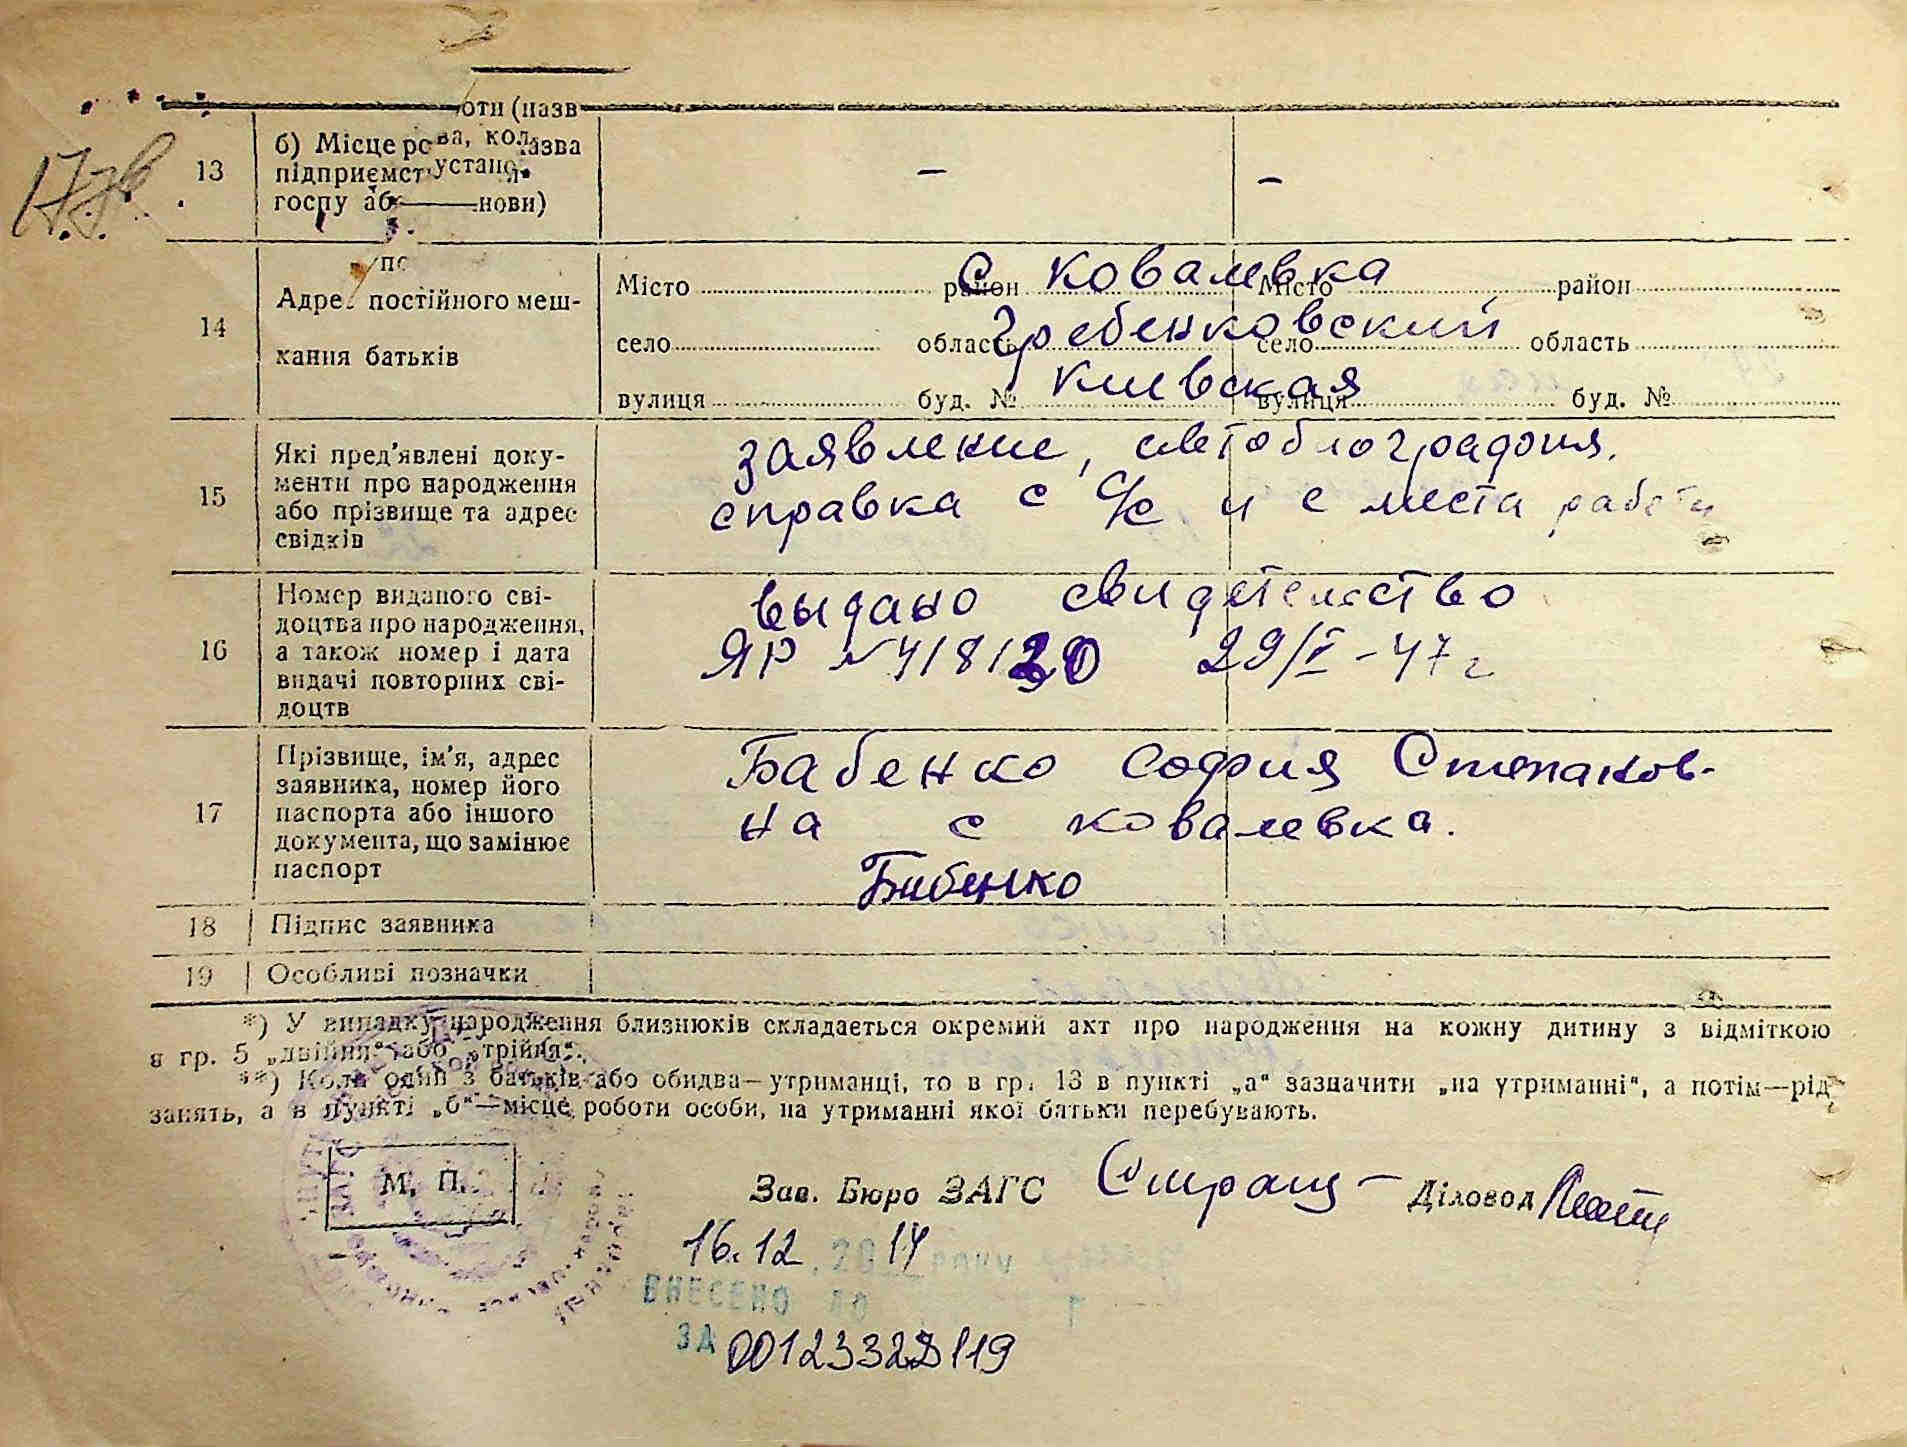 оти (назв
13 б) Місце ро ва, кол. назва — —
підприємст устано
госпу або нови)
14 Адрес постійного меш-
кання батьків
Місто район Місто район
с Ковалевка
село область село область
Гребенковский
вулиця буд. № вулиця буд. №
Киевская
15 Які пред'явлені доку-
менти про народження
або прізвище та адрес
свідків
заявление, автобиография.
справка с с/с и с места работы
16 Номер виданого сві-
доцтва про народження,
а також номер і дата
видачі повторних сві-
доцтв
выдано свидетельство
ЯР № 29/V-47 г
17 Прізвище, ім'я, адрес
заявника, номер його
паспорта або іншого
документа, що замінює
паспорт
Бабенко София Степанов-
на с Ковалевка.
Бабенко
18 Підпис заявника
19 Особливі позначки
*) У випадку народження близнюків складається окремий акт про народження на кожну дитину з відміткою
в гр. 5 „двійня“ або „трійня“.
**) Коли один з батьків або обидва—утриманці, то в гр. 13 в пункті „а“ зазначити „на утриманні“, а потім—рід
занять, а в пункті „б“—місце роботи особи, на утриманні якої батьки перебувають.
М. П.
Зав. Бюро ЗАГС Діловод
16.12.2014 року
ВНЕСЕНО ДО
ЗА